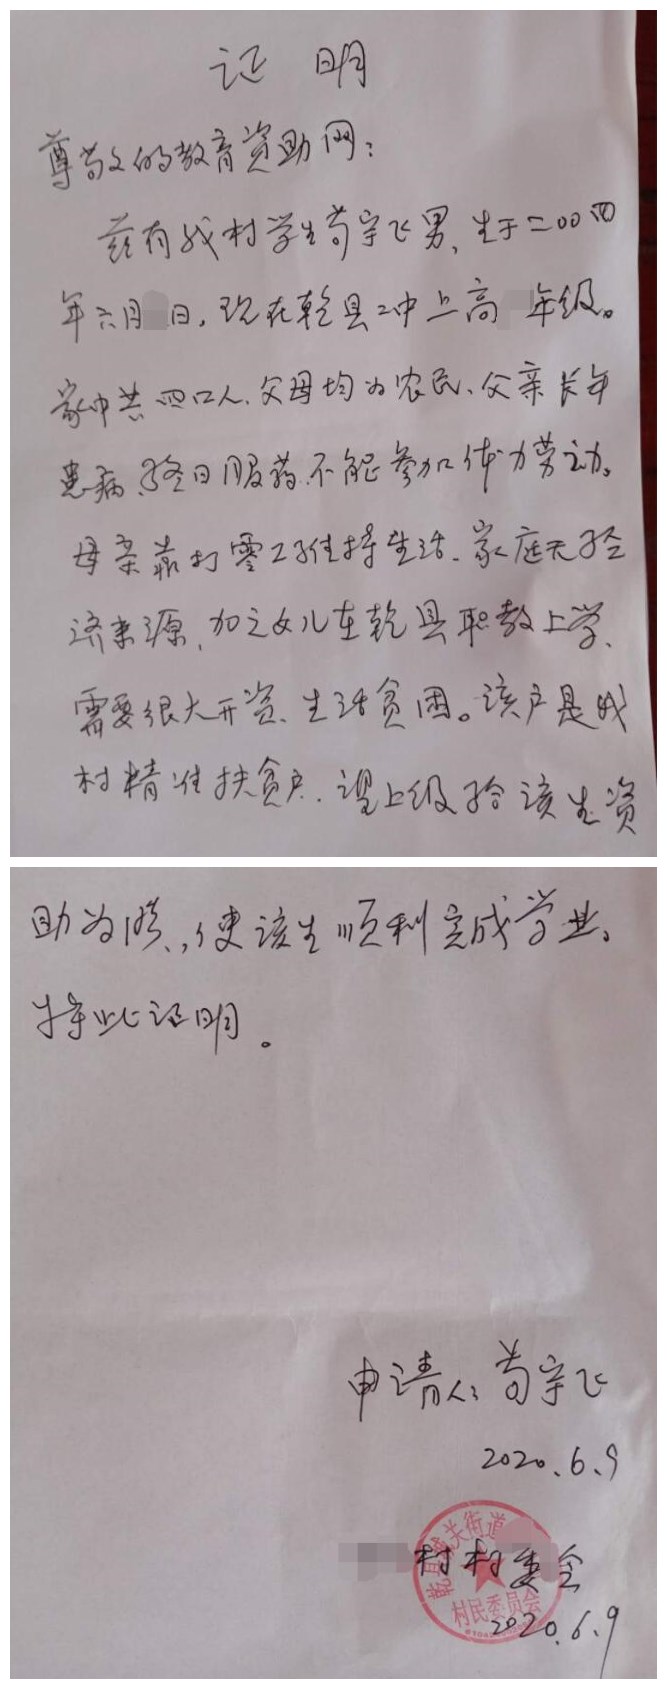 证 明
尊敬的教育资助网:
兹有我村学生苟宇飞男,生于二00四
年六月 日,现在乾县二中上高 年级。
家中共四口人、父母均为农民、父亲长年
患病、终日服药、不能参加体力劳动。
母亲靠打零工维持生活、家庭无经
济来源,加之女儿在乾县职教上学、
需要很大开资、生活贫困。该户是我
村精准扶贫户、望上级给该生资
助为盼,使该生顺利完成学业。
特此证明。
申请人:苟宇飞
2020.6.9
乾县城关街道
村村委会
村民委员会
2020.6.9